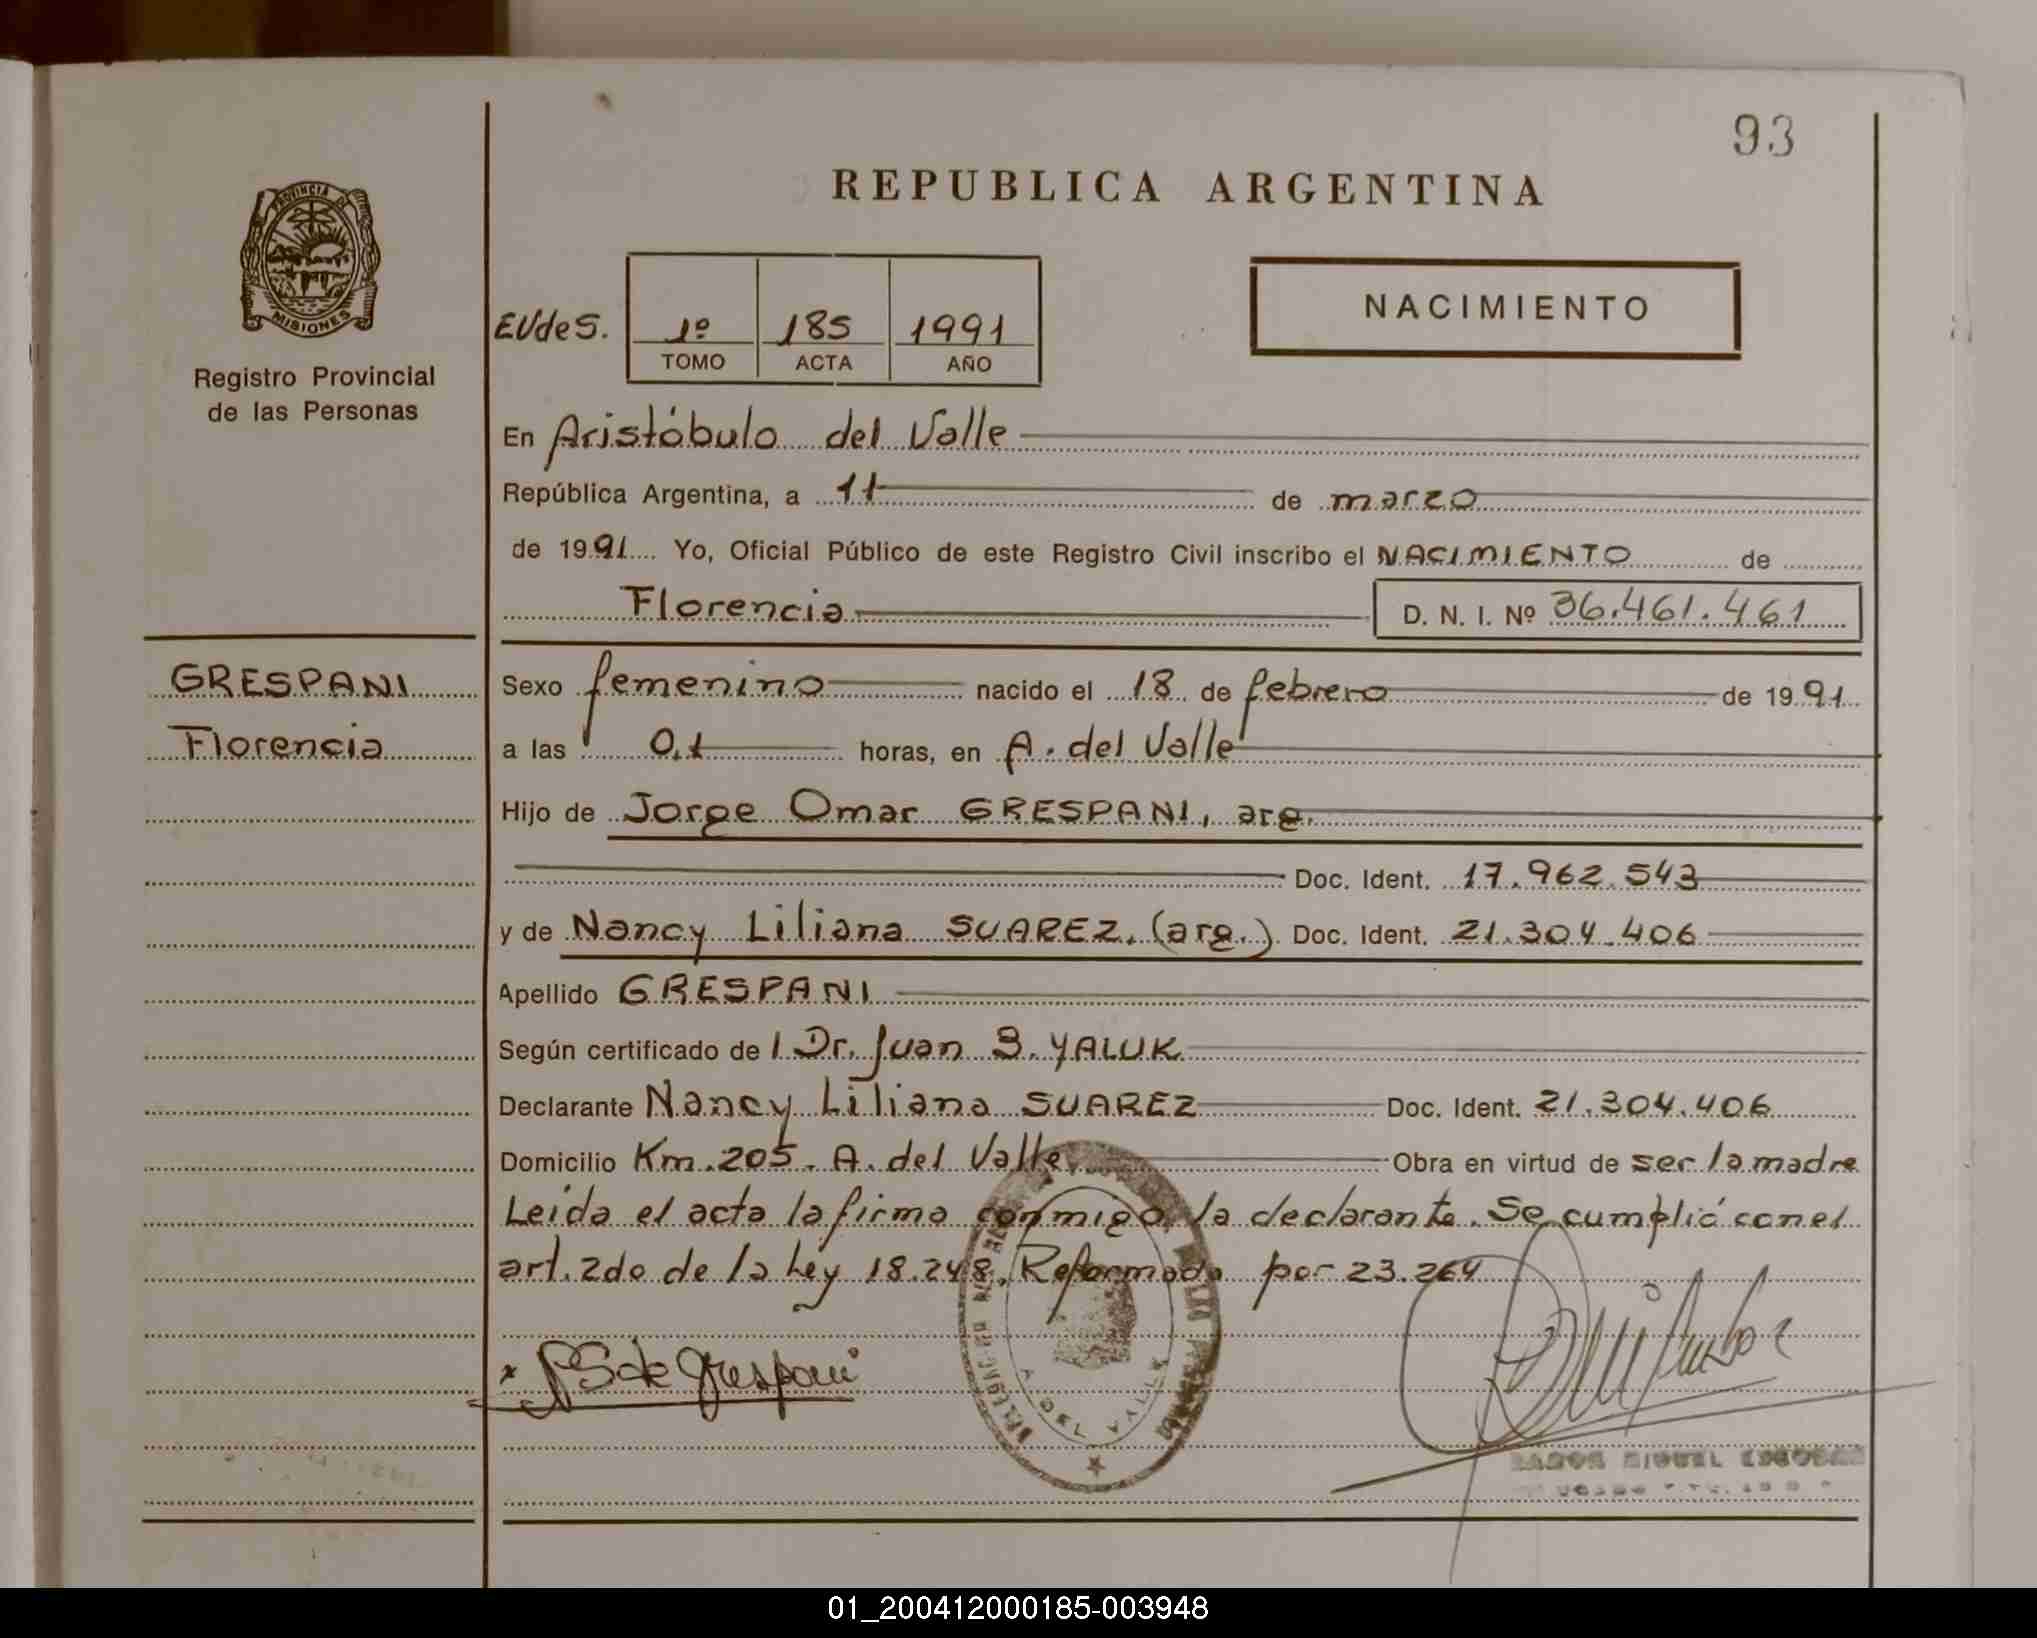 93
REPUBLICA ARGENTINA
PROVINCIA DE
MISIONES
Registro Provincial
de las Personas
EUdeS.
1º 185 1991
TOMO ACTA AÑO
NACIMIENTO
En Aristóbulo del Valle
República Argentina, a 11 de marzo
de 1991 Yo, Oficial Público de este Registro Civil inscribo el NACIMIENTO de
Florencia D. N. I. Nº 36.461.461
GRESPANI
Florencia
Sexo femenino nacido el 18 de febrero de 1991
a las 0,1 horas, en A. del Valle
Hijo de Jorge Omar GRESPANI, arg.
Doc. Ident. 17.962.543
y de Nancy Liliana SUAREZ, (arg.) Doc. Ident. 21.304.406
Apellido GRESPANI
Según certificado de l Dr. Juan B. YALUK
Declarante Nancy Liliana SUAREZ Doc. Ident. 21.304.406
Domicilio Km. 205. A. del Valle Obra en virtud de ser la madre
Leida el acta la firma conmigo, la declarante. Se cumplió con el
art. 2do de la Ley 18.248. Reformada por 23.264
x NS de Grespani
A. DEL VALLE
MIGUEL ESCOBAR
01_200412000185-003948